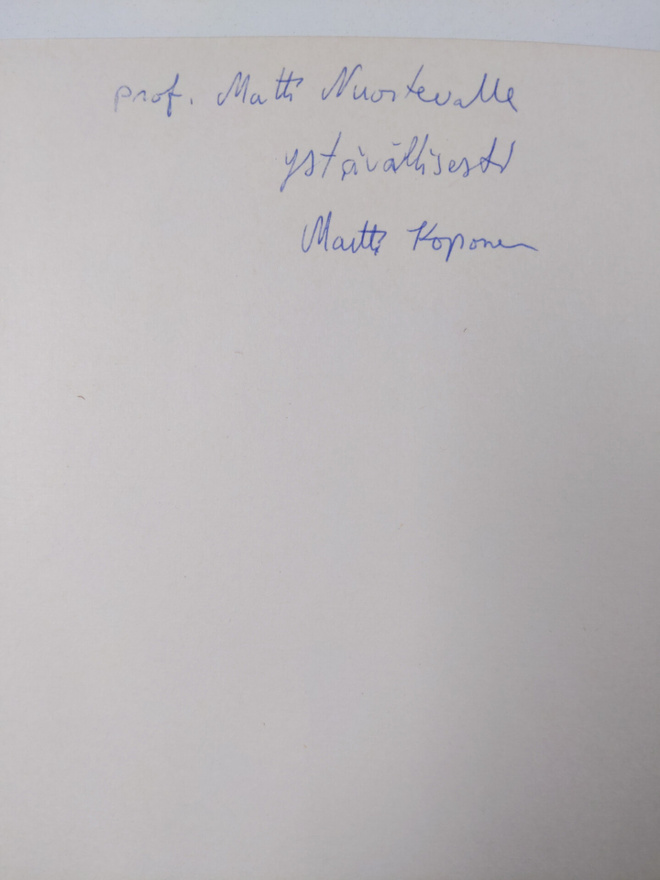 prof. Matti Nuortevalle
ystävällisesti
Martti Koponen